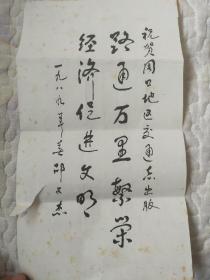 祝贺周口地区交通志出版
路通万里繁荣
经济促进文明
一九八九年春 邵文杰